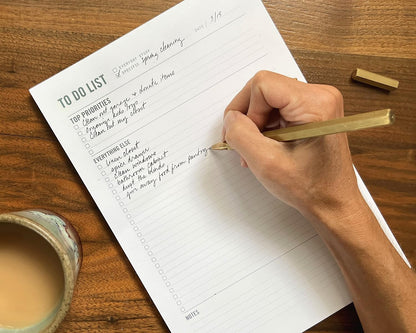 TO DO LIST
EVERYDAY STUFF
SPECIFIC Spring cleaning
DATE 3/15
TOP PRIORITIES
Clean out garage + donate items
Organize kids toys
Clean out my closet
EVERYTHING ELSE
linen closet
spice drawer
clean windows
bathroom cabinet
dust the blinds
away food from pantry
NOTES